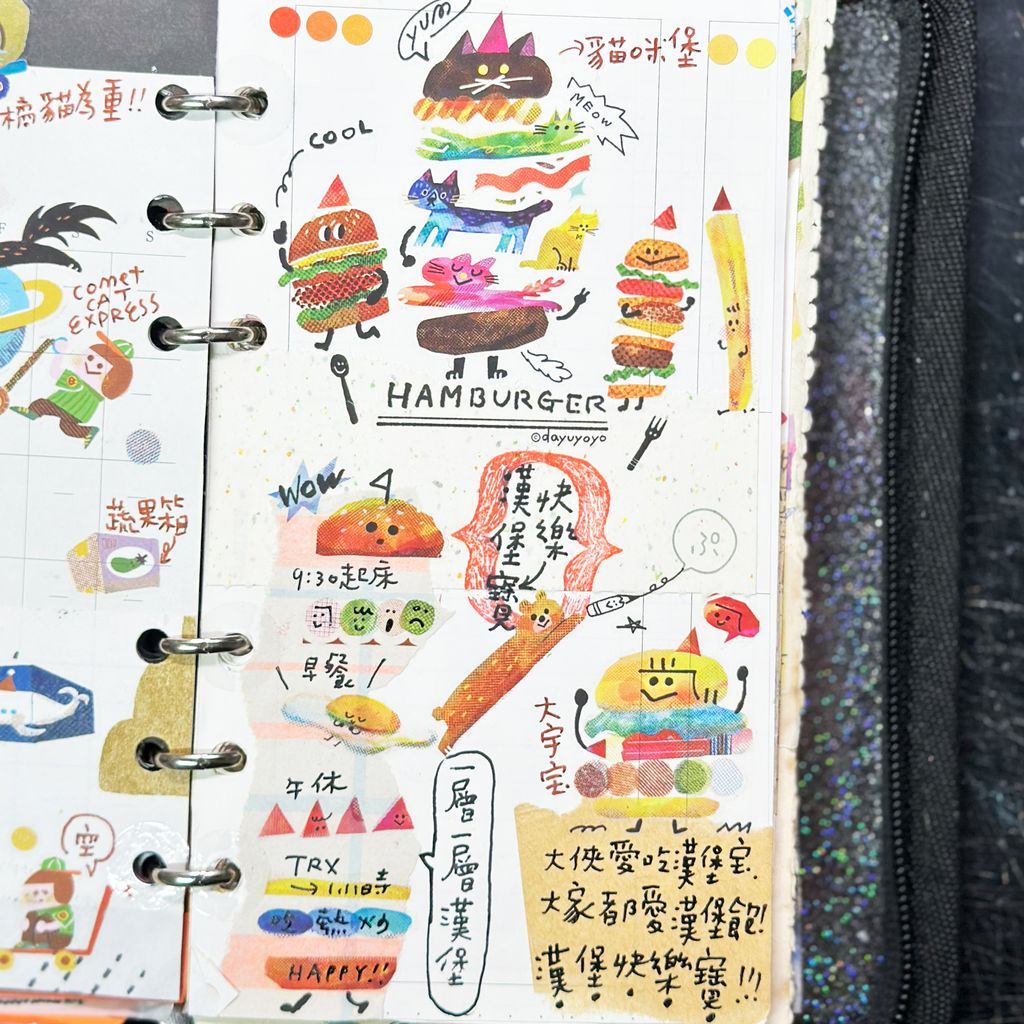 橘貓為重!!
COMET
CAT
EXPRESS
蔬果箱
空
YUM
貓咪堡
MEOW
COOL
HAMBURGER
©dayuyoyo
WOW
快樂
漢堡寶
ぷ
9:30起床
早餐
午休
TRX
→1小時
吃熱炒
HAPPY!!
一層一層漢堡
大宇宝
大俠愛吃漢堡宝.
大家都愛漢堡飽!
漢堡快樂寶!!!